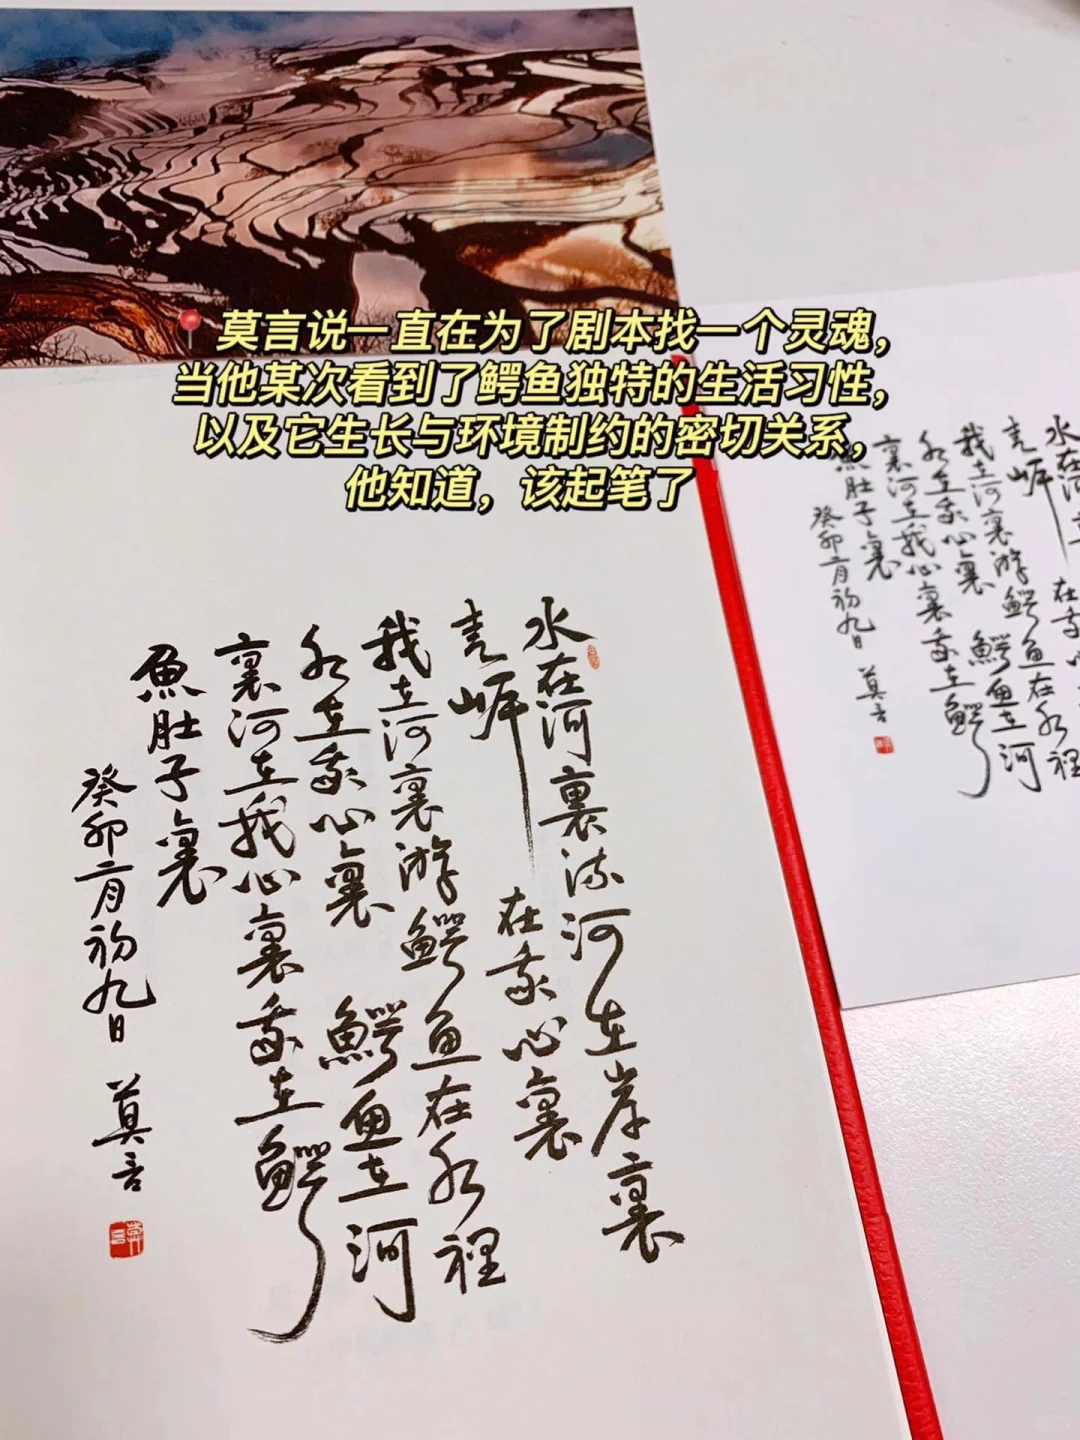 莫言说一直在为了剧本找一个灵魂，
当他某次看到了鳄鱼独特的生活习性，
以及它生长与环境制约的密切关系，
他知道，该起笔了
水在河裏流河在岸裏
走岸 在我心裏
我在河裏游鰐鱼在水裡
水在我心裏 鰐鱼在河
裏河在我心裏我在鰐
魚肚子裏
癸卯二月初九日 莫言
水在河
走岸 在我
我在河裏游鰐鱼在水裡
水在我心裏 鰐鱼在河
裏河在我心裏我在鰐
魚肚子裏
癸卯二月初九日 莫言